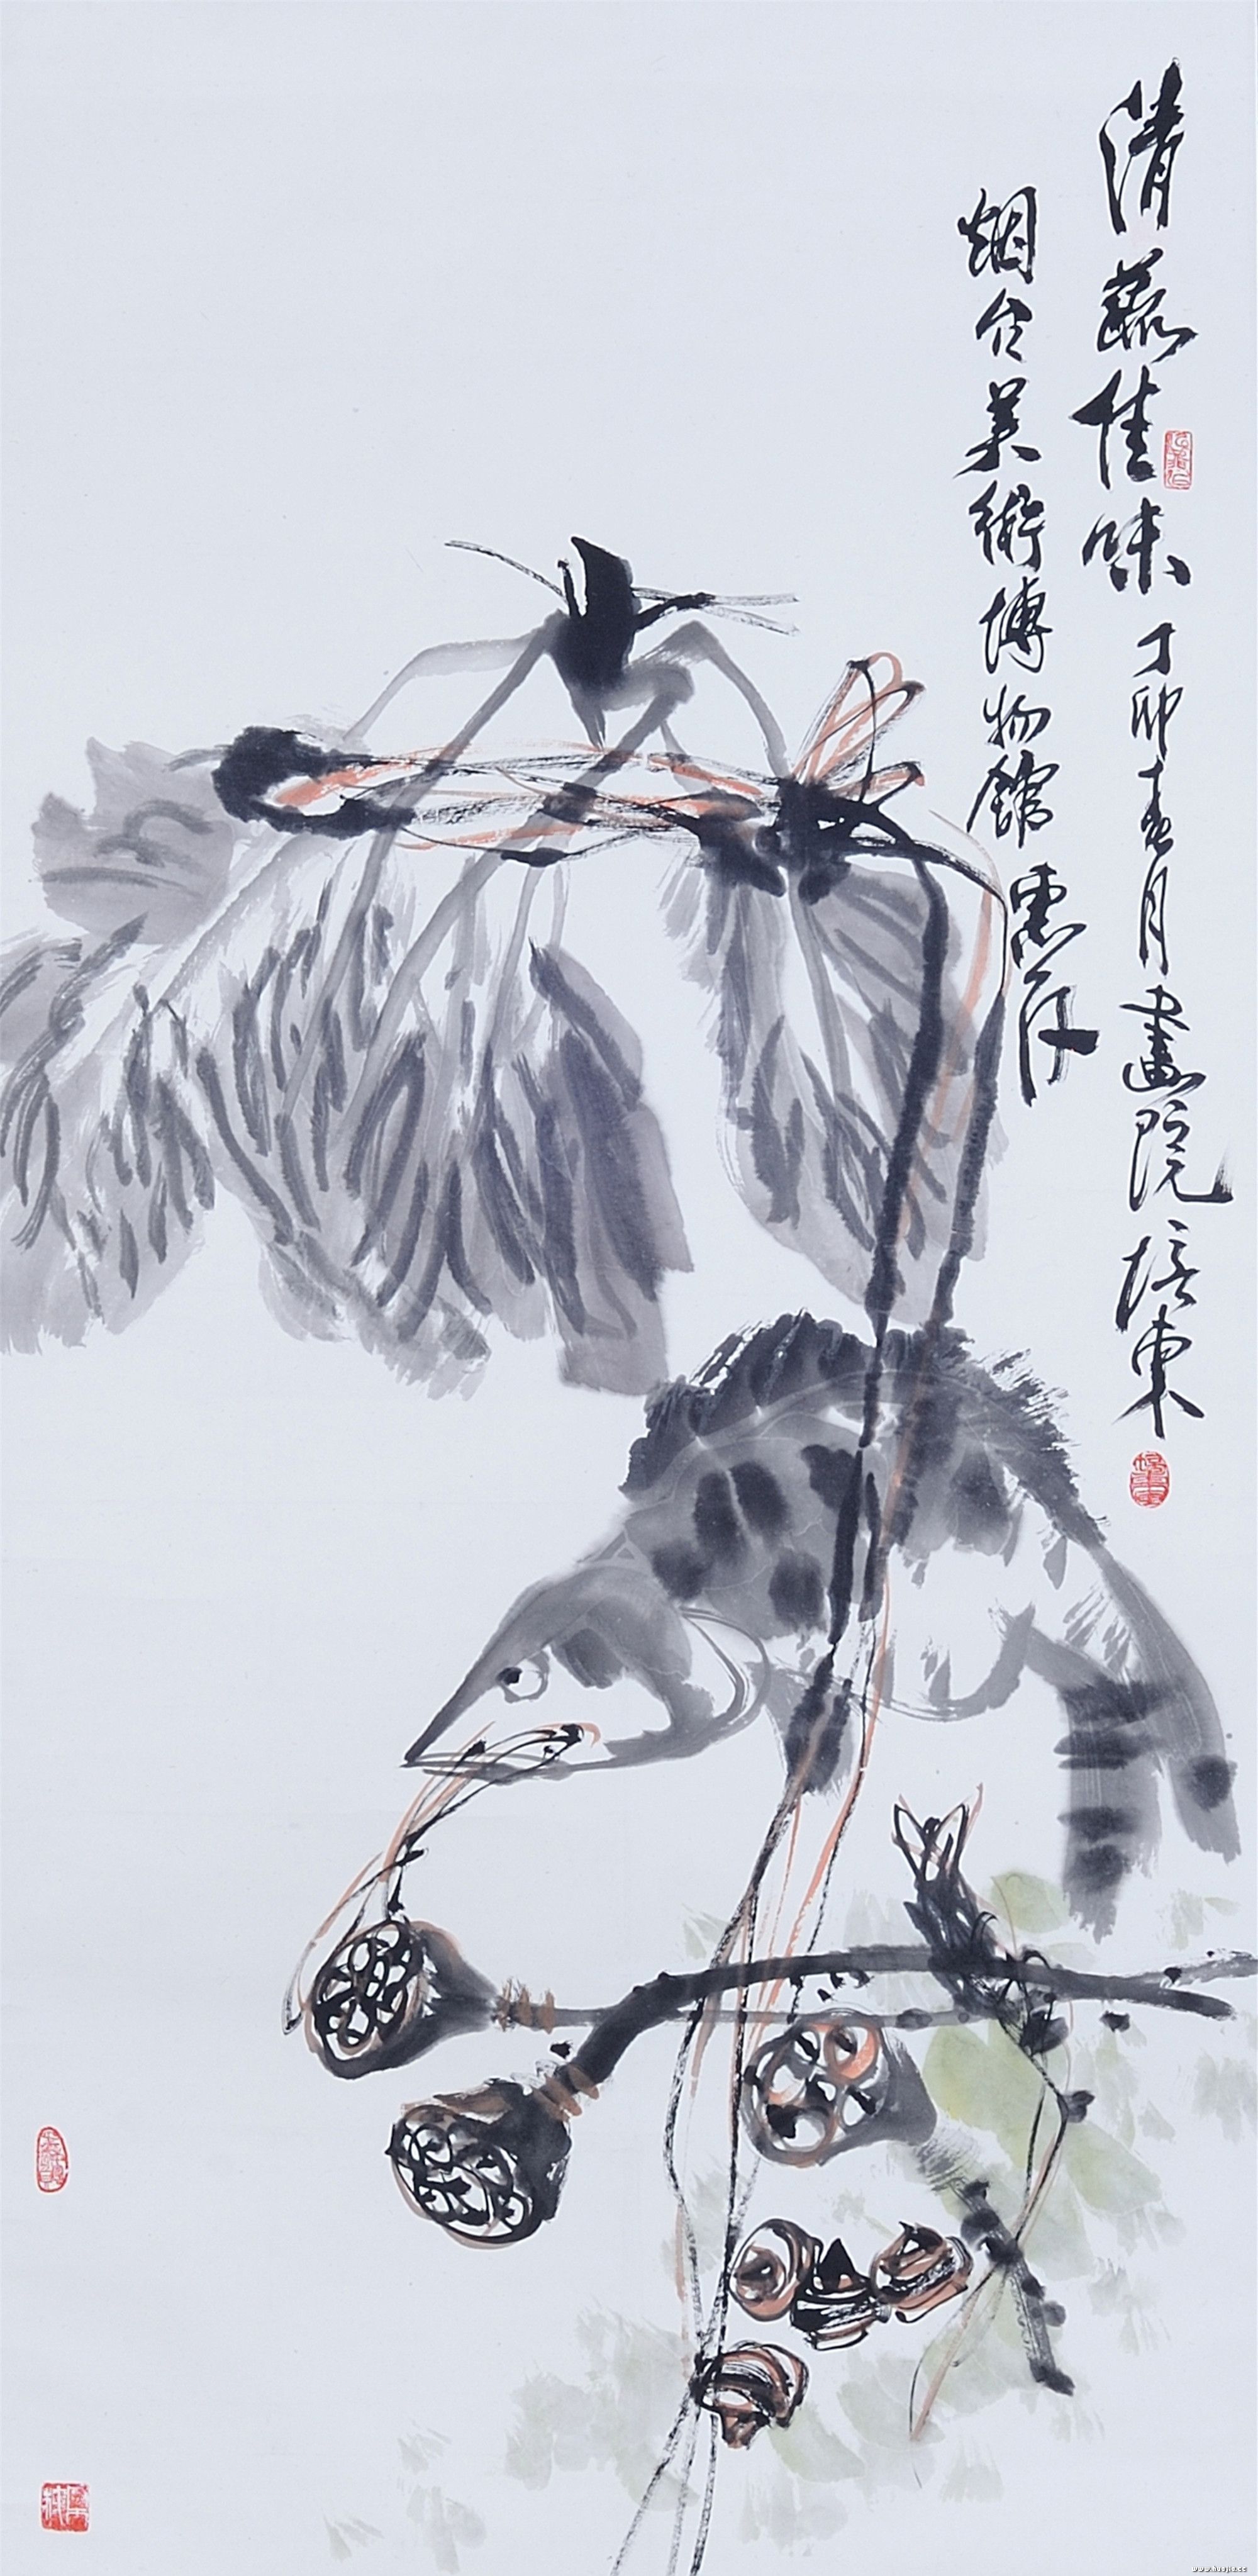 清蔬佳味 丁卯春月 畫院培東
烟台美術博物館惠存
www.huajia.cc